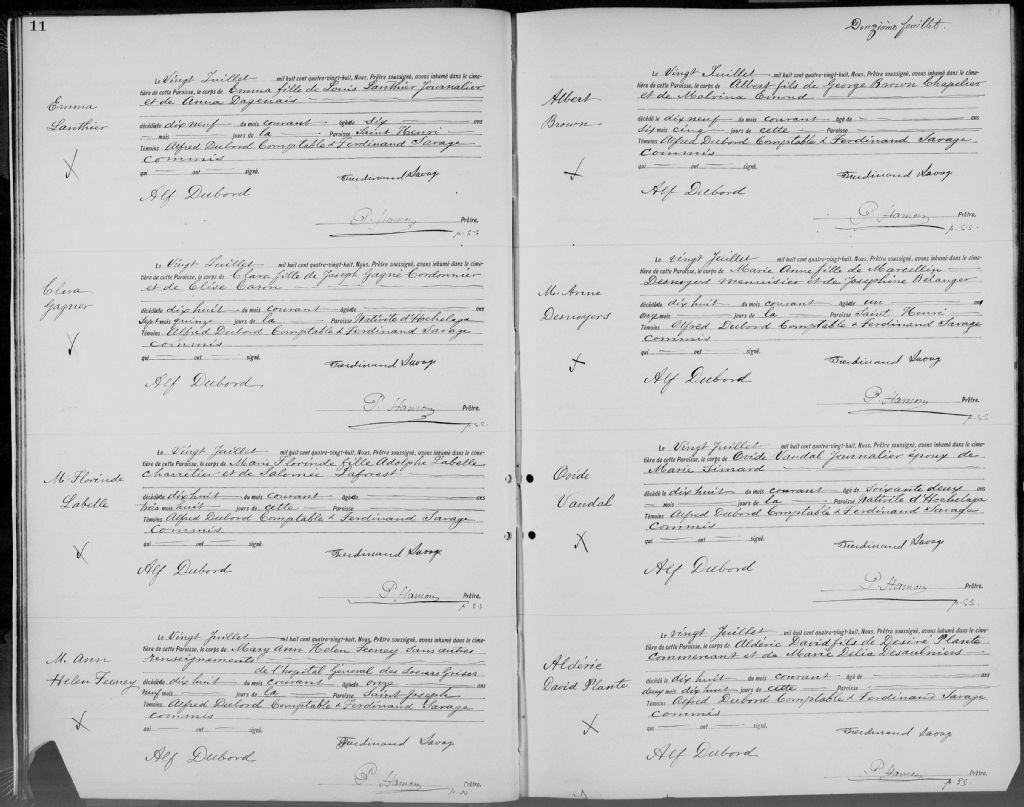 11
Emma
Lanthier
Le Vingt Juillet mil huit cent quatre-vingt-huit, Nous, Prêtre soussigné, avons inhumé dans le cime-
tière de cette Paroisse, le corps de Emma fille de Louis Lanthier Journalier
et de Anna Dagenais
décédée dix neuf du mois courant âgée de Six ans
mois jours de la Paroisse Saint Henri
Témoins Alfred Dubord Comptable & Ferdinand Savage
Commis
qui ont signé.
Ferdinand Savag
Alf Dubord
P. Hamon Prêtre.
p.s.s.
Clara
Gagner
Le Vingt Juillet mil huit cent quatre-vingt-huit, Nous, Prêtre soussigné, avons inhumé dans le cime-
tière de cette Paroisse, le corps de Clara fille de Joseph Gagné Cordonnier
et de Elise Caron
décédée dix huit du mois courant âgée de ans
Sept mois quinze jours de la Paroisse Nativité d'Hochelaga
Témoins Alfred Dubord Comptable & Ferdinand Savage
Commis
qui ont signé.
Ferdinand Savag
Alf Dubord
P. Hamon Prêtre.
p.s.s.
M. Florinde
Labelle
Le Vingt Juillet mil huit cent quatre-vingt-huit, Nous, Prêtre soussigné, avons inhumé dans le cime-
tière de cette Paroisse, le corps de Marie Florinde fille Adolphe Labelle
Charretier et de Salomée
décédée dix huit du mois courant âgée de ans
trois mois huit jours de cette Paroisse
Témoins Alfred Dubord Comptable & Ferdinand Savage
Commis
qui ont signé.
Ferdinand Savag
Alf Dubord
P. Hamon Prêtre.
p.s.s.
M. Ann
Helen Feeney
Le Vingt Juillet mil huit cent quatre-vingt-huit, Nous, Prêtre soussigné, avons inhumé dans le cime-
tière de cette Paroisse, le corps de Mary Ann Helen Feeney Sans autres
renseignements
de l'hopital Général des Soeurs Grises
décédée dix huit du mois courant âgée de onze ans
neuf mois jours de la Paroisse Saint Joseph
Témoins Alfred Dubord Comptable & Ferdinand Savage
Commis
qui ont signé.
Ferdinand Savag
Alf Dubord
P. Hamon Prêtre.
Onzième feuillet.
Albert
Brown
Le Vingt Juillet mil huit cent quatre-vingt-huit, Nous, Prêtre soussigné, avons inhumé dans le cime-
tière de cette Paroisse, le corps de Albert fils de George Brown Chapelier
et de Malvina Emond
décédé le dix neuf du mois courant âgé de ans
Six mois cinq jours de cette Paroisse
Témoins Alfred Dubord Comptable & Ferdinand Savage
Commis
qui ont signé.
Ferdinand Savag
Alf Dubord
P. Hamon Prêtre.
p.s.s.
M. Anne
Desnoyers
Le Vingt Juillet mil huit cent quatre-vingt-huit, Nous, Prêtre soussigné, avons inhumé dans le cime-
tière de cette Paroisse, le corps de Marie Anne fille de Marcellin
Desnoyers menuisier et de Josephine Bélanger
décédée dix huit du mois courant âgée un an
onze mois jours de la Paroisse Saint Henri
Témoins Alfred Dubord Comptable & Ferdinand Savage
Commis
qui ont signé.
Ferdinand Savag
Alf Dubord
P. Hamon Prêtre.
p.s.s.
Ovide
Vandal
Le Vingt Juillet mil huit cent quatre-vingt-huit, Nous, Prêtre soussigné, avons inhumé dans le cime-
tière de cette Paroisse, le corps de Ovide Vandal Journalier époux de
Marie Simard
décédé le dix huit du mois courant âgé de Soixante deux ans
mois jours de la Paroisse Nativité d'Hochelaga
Témoins Alfred Dubord Comptable & Ferdinand Savage
Commis
qui ont signé.
Ferdinand Savag
Alf Dubord
P. Hamon Prêtre.
p.s.s.
Aldéric
David Plante
Le Vingt Juillet mil huit cent quatre-vingt-huit, Nous, Prêtre soussigné, avons inhumé dans le cime-
tière de cette Paroisse, le corps de Aldéric David fils de Désiré Plante
Commercant et de Marie Delia Desaulniers
décédé le dix huit du mois courant âgé de ans
deux mois dix huit jours de cette Paroisse
Témoins Alfred Dubord Comptable & Ferdinand Savage
Commis
qui ont signé.
Ferdinand Savag
Alf Dubord
P. Hamon Prêtre.
p.s.s.